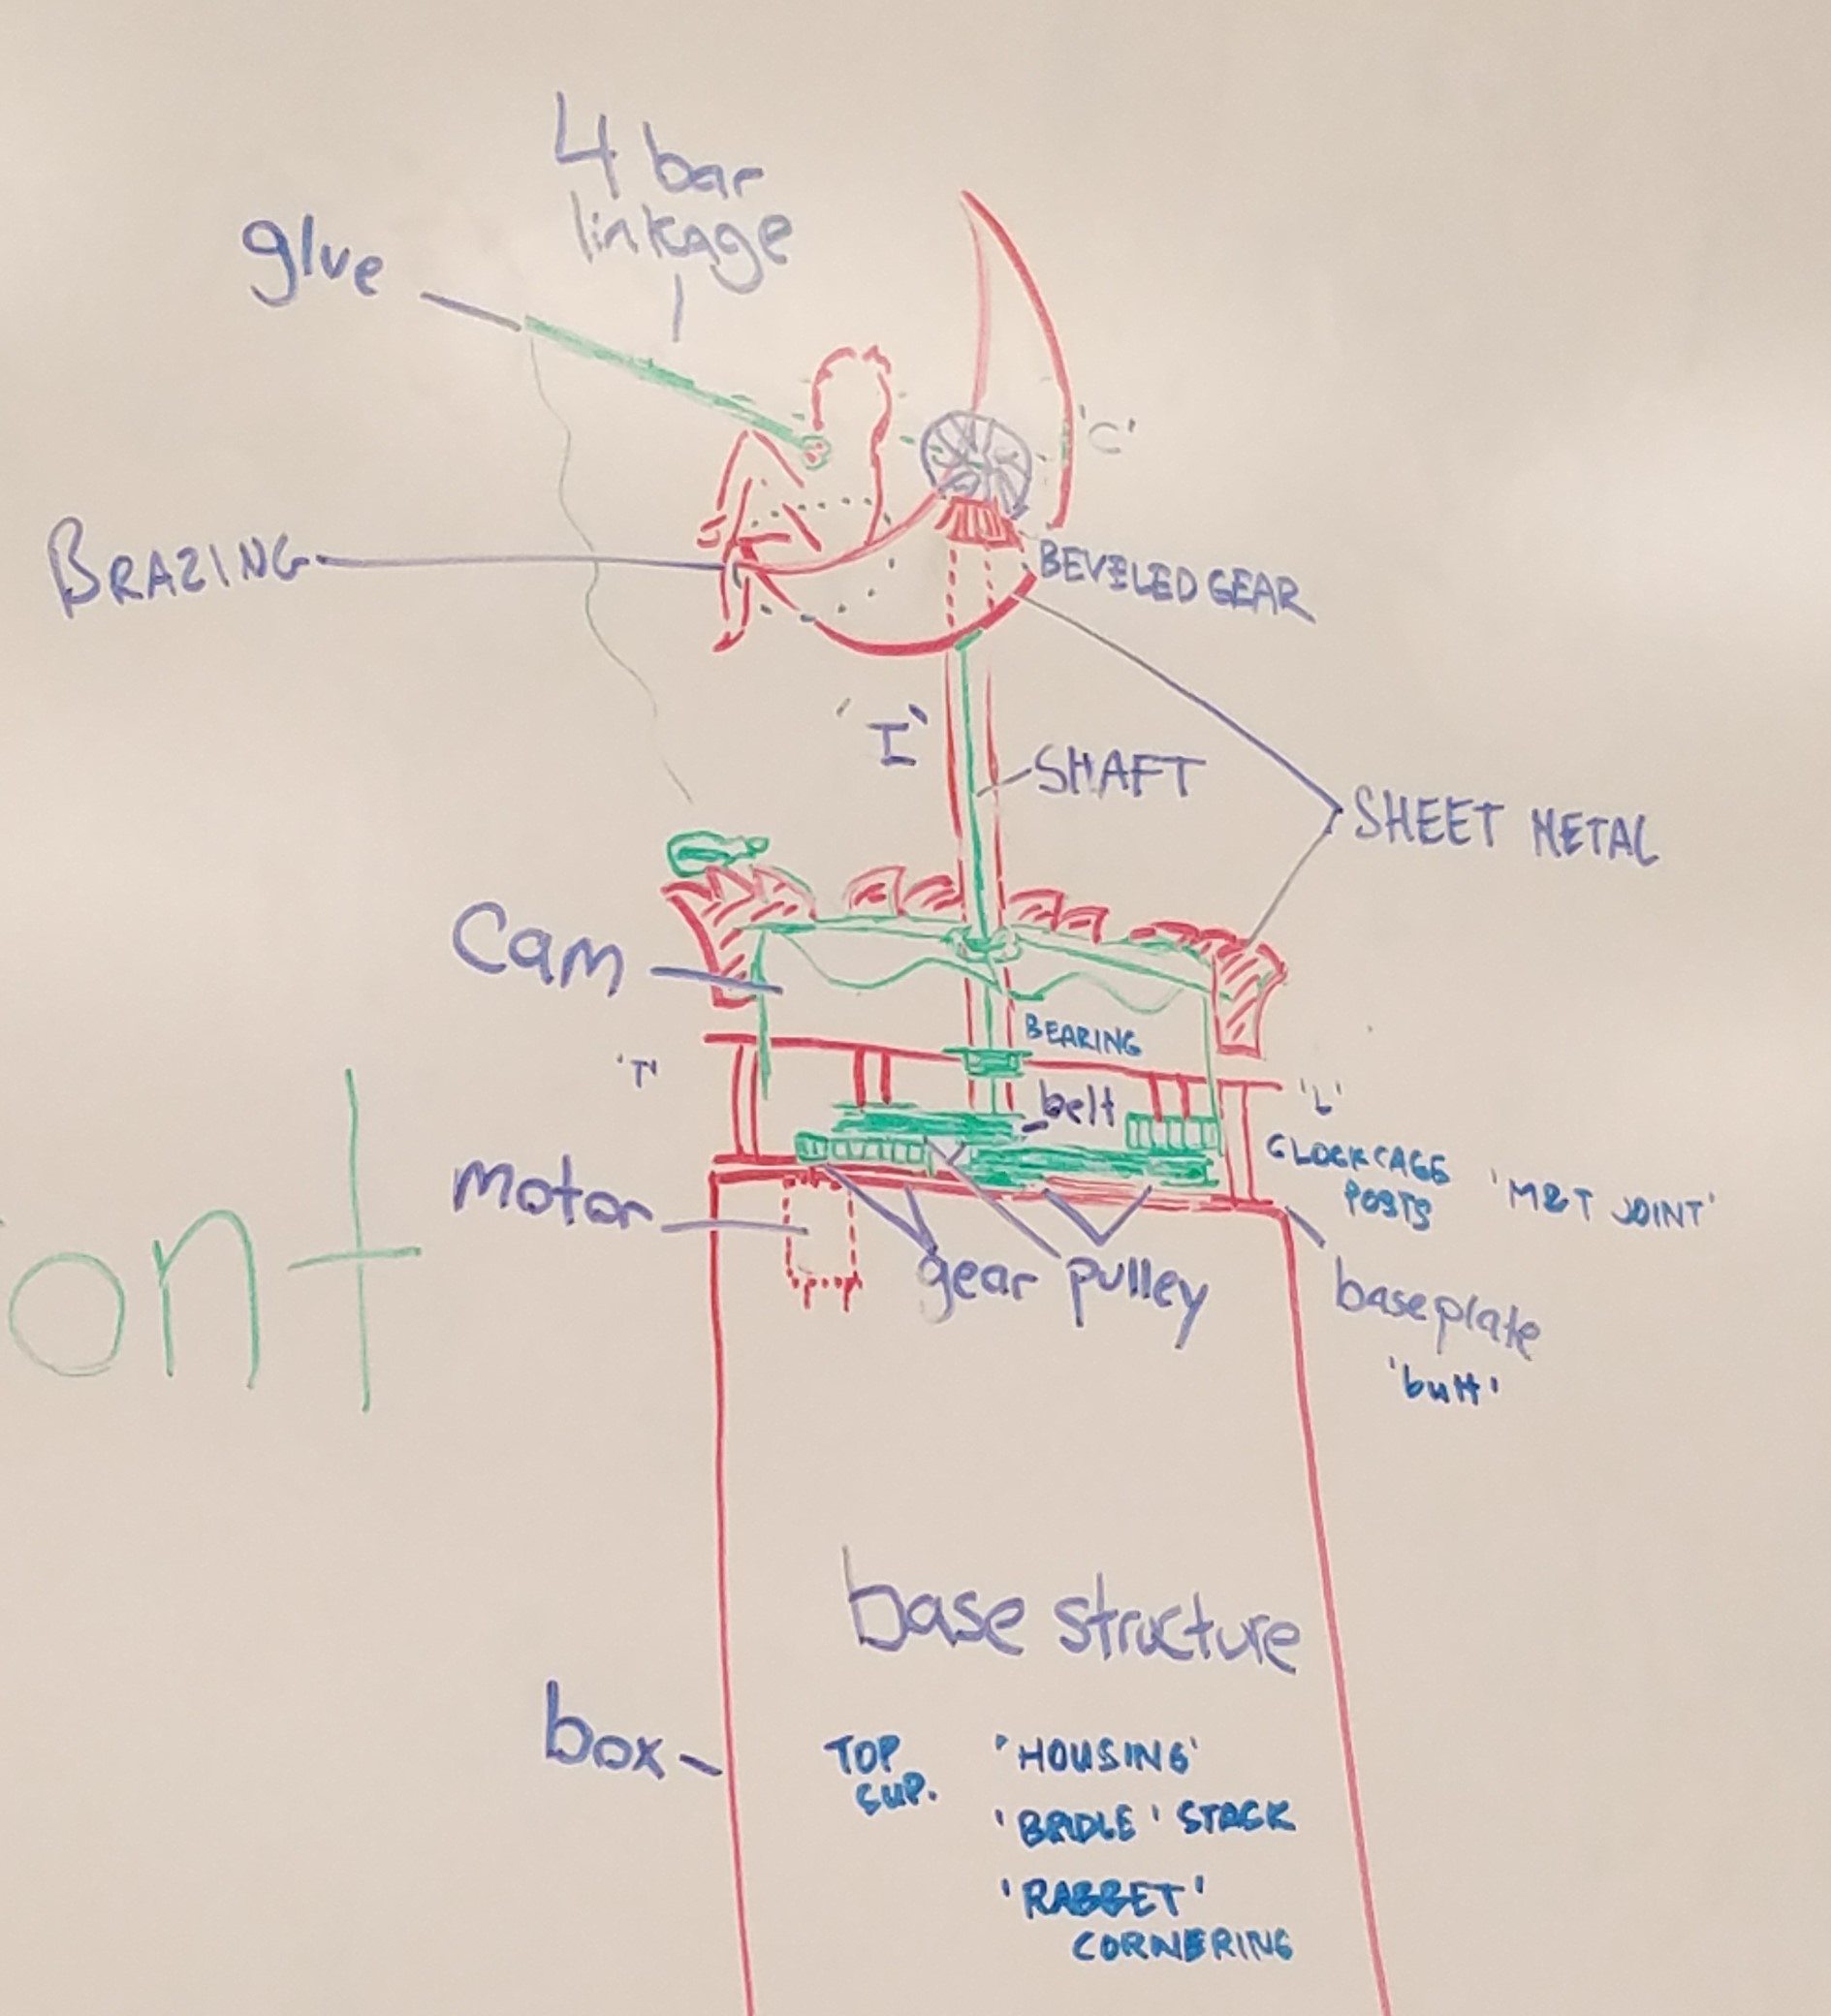 4 bar
linkage
glue
'C'
BRAZING
BEVELED GEAR
'I'
SHAFT
SHEET METAL
Cam
BEARING
'T'
belt
'L'
CLOCKCAGE
POSTS
'M&T JOINT'
Motor
gear pulley
baseplate
'butt'
ont
base structure
box
TOP
SUP.
'HOUSING'
'BRIDLE' STACK
'RABBET'
CORNERING